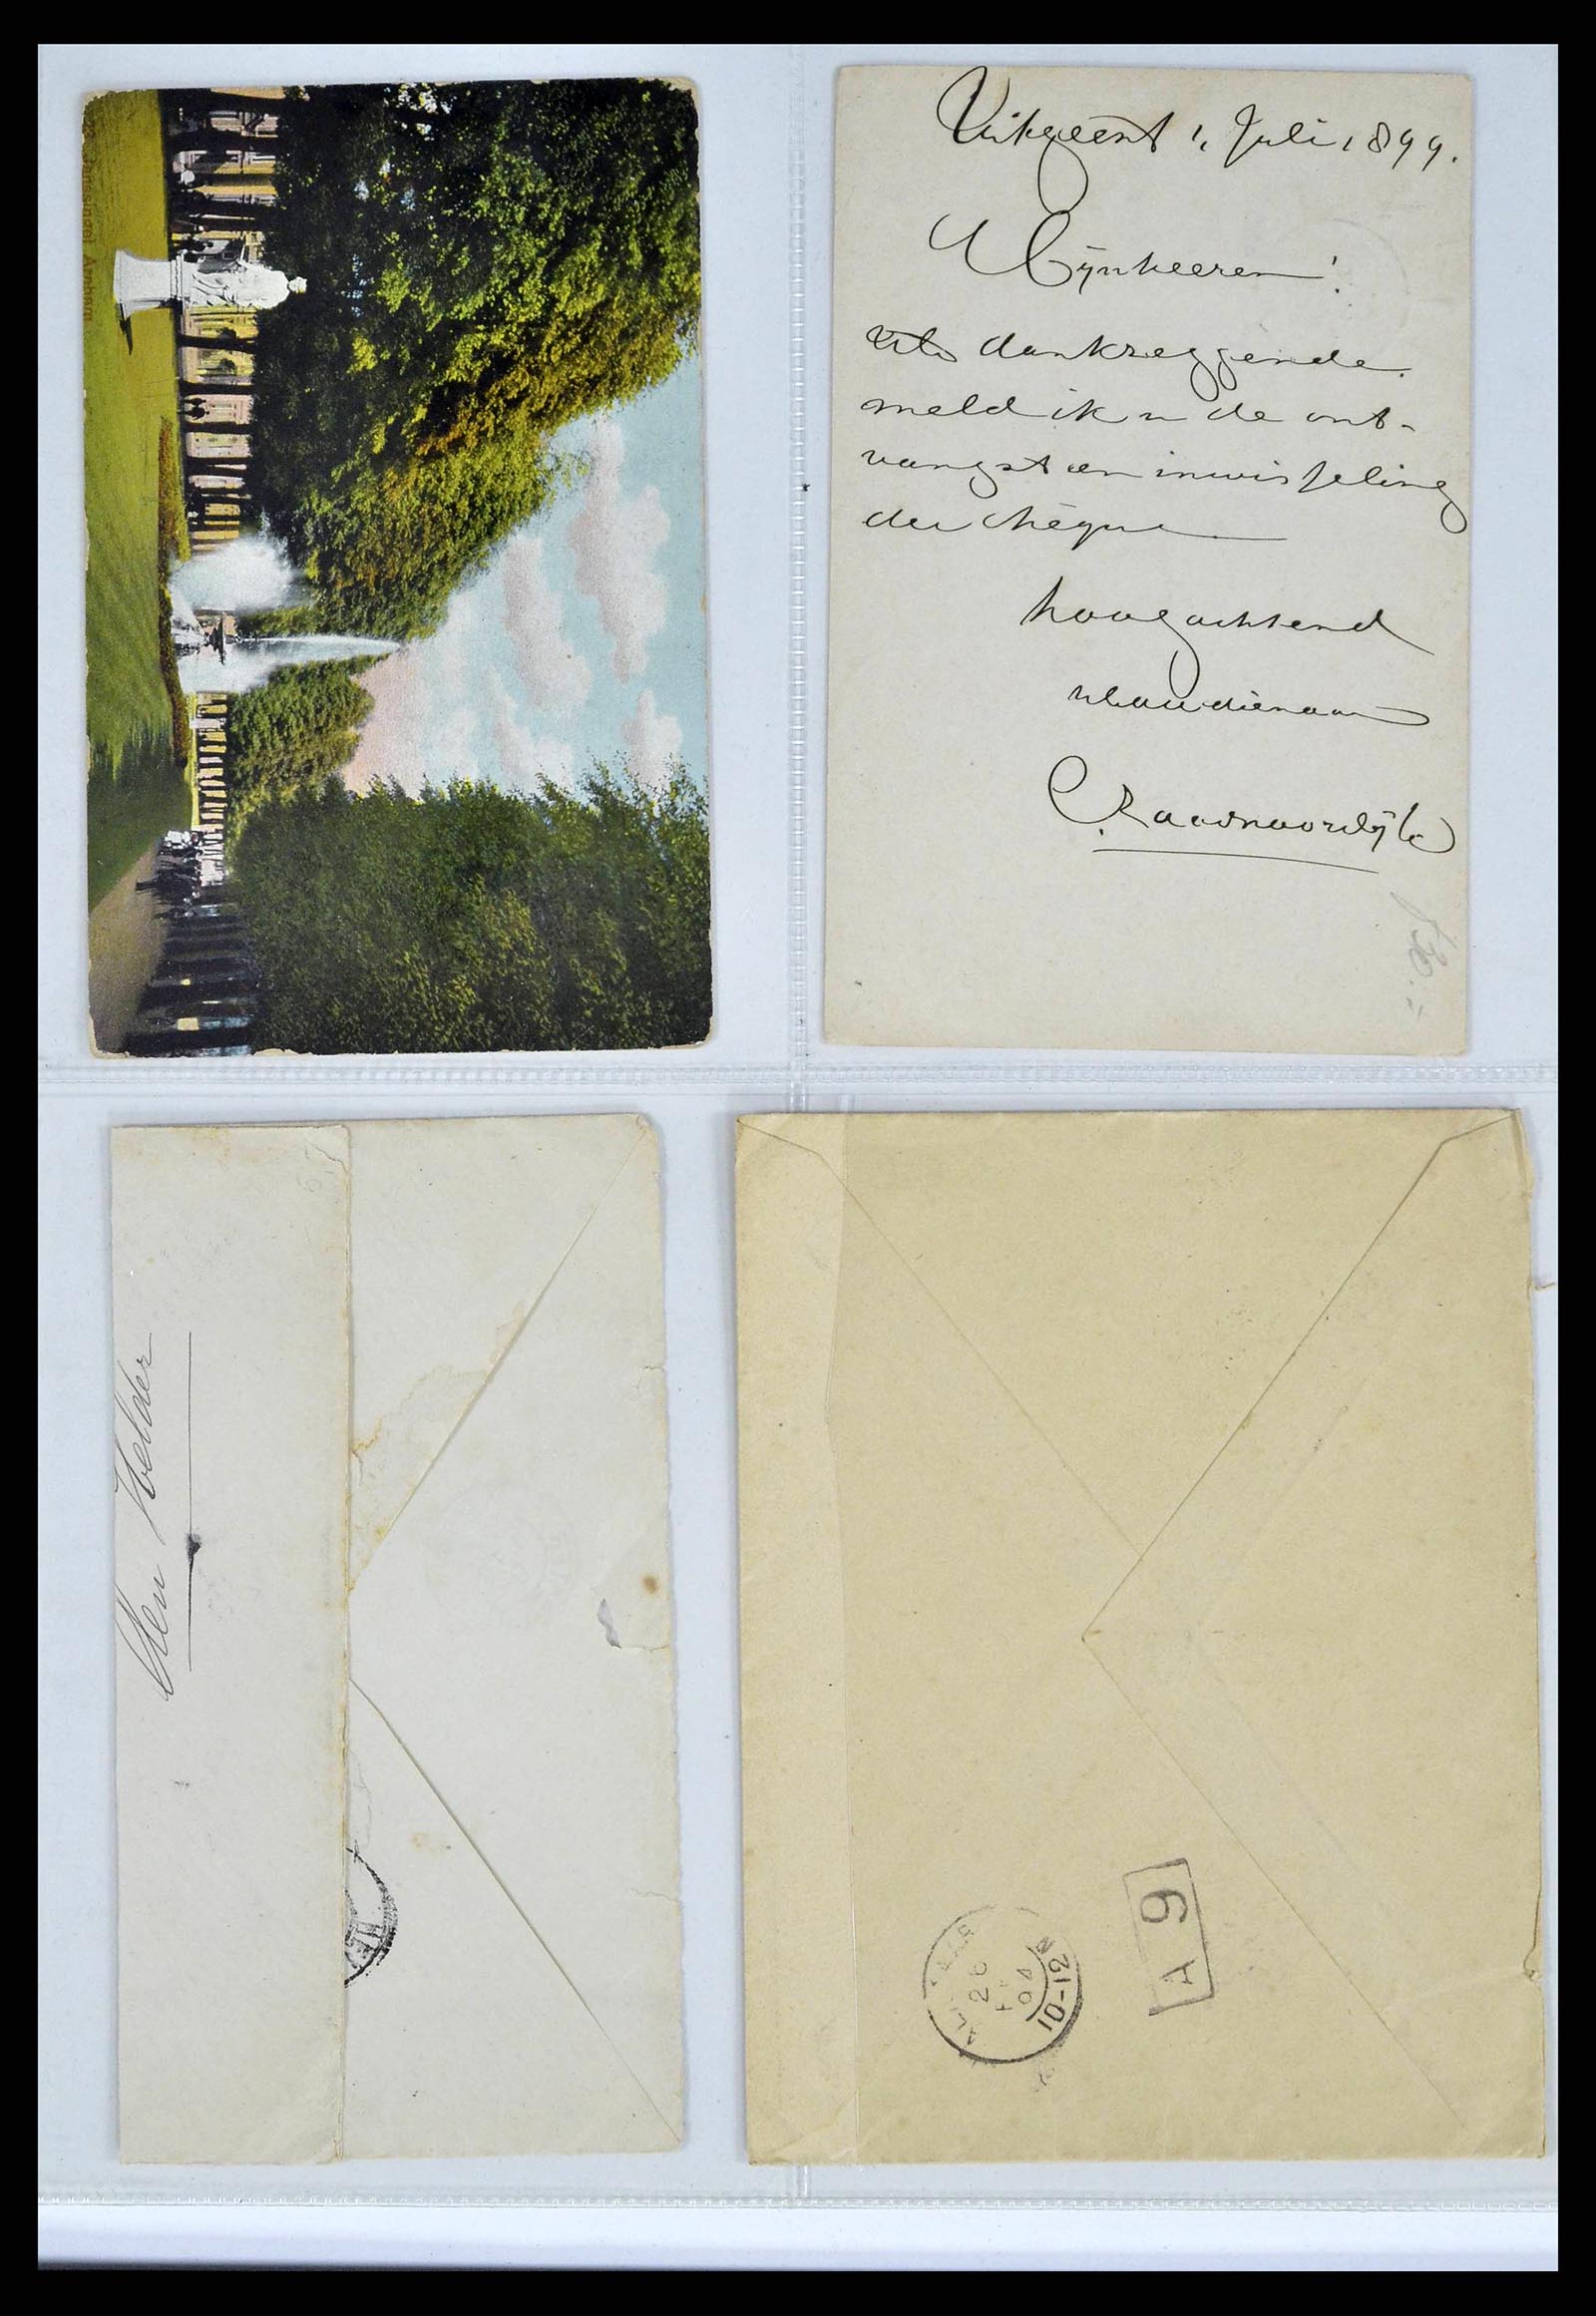 Jansingel Arnhem
Uitgeest 1, Juli 1899.
Mijnheeren!
dankzeggende
meld ik u de ont-
vangst en inwisseling
der chèque
hoogachtend
uw dienaar
C. Raadnoordijk
Den Helder
26
94
10-12
A 9